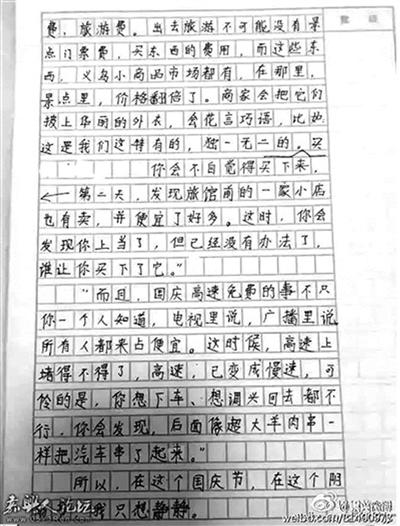 费，旅游费。出去旅游不可能没有景
点门票费，买东西的费用，而这些东
西，义乌小商品市场都有，在那里，
景点里，价格翻倍了。商家会把它们
披上华丽的外衣，会花言巧语，比如
这是我们这特有的，独一无二的。买
你会不自觉得买下来，
← 第二天，发现旅馆前的一家小店
也有卖，并便宜了好多。这时，你会
发现你上当了，但已经没有办法了，
谁让你买下了它。”
“而且，国庆高速免费的事不只
你一个人知道，电视里说，广播里说
所有人都来占便宜。这时候，高速上
堵得不得了，高速，已变成慢速，可
怜的是，你想下车、想调头回去都不
行，你会发现，后面像超大羊肉串一
样把汽车串了起来。”
所以，在这个国庆节，在这个阴
我只想静静。